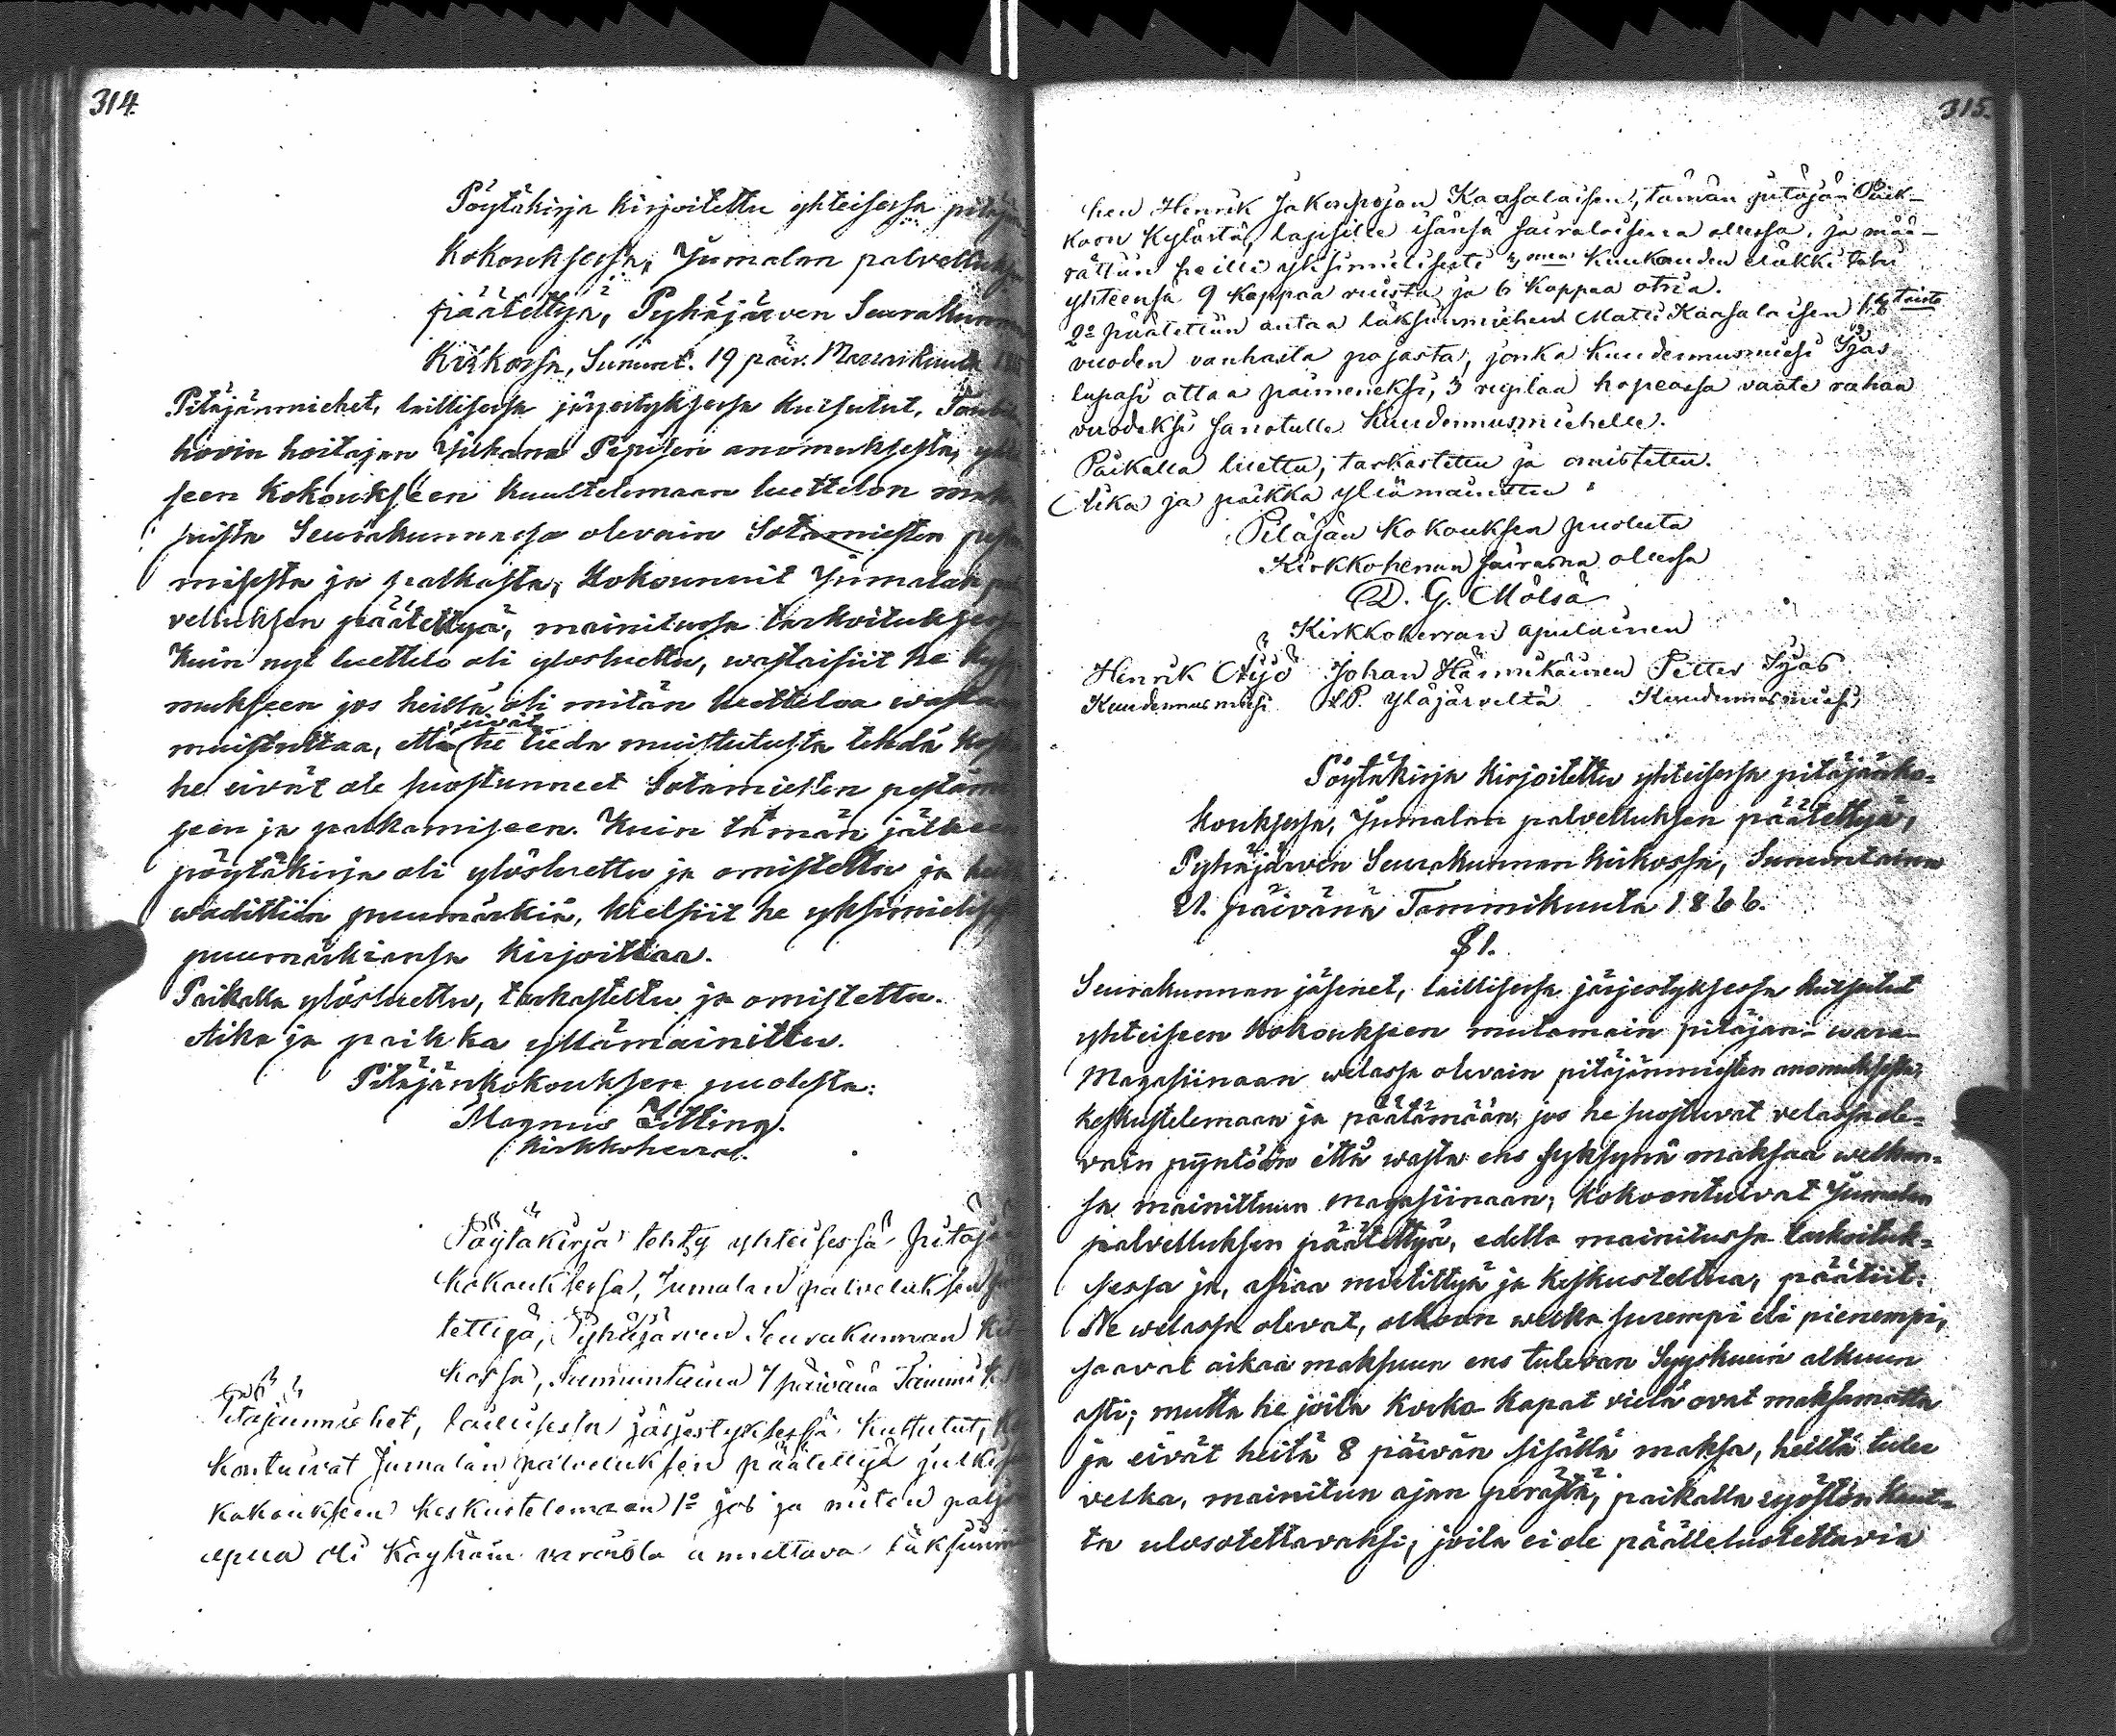 314.
Pöytäkirja kirjoitettu yhteisessa pitäjän
Kokouksessa, Jumalan palvelluksen
päätettyä, Pyhäjärven Seurakunnan
Kirkossa, Sununt. 19 päiv. Marraskuuta
Pitäjänmiehet, laillisessa järjestyksessa kutsutut,
hovin hoitajan Juhana Pipisen anomuksesta,
seen Kokoukseen kuustelemaan luettelon
suista Seurakunnassa olevain Sotamiesten
misesta ja palkasta, Kokounuit Jumalan
velluksen päätettyä, mainitussa tarkoituksessa
Kuin nyt luettelo oli ylosluettu, wastaisiit he
mukseen jos heillä oli mitän luetteloa wastaan
muistuttaa, että he eivät tieda muistutusta tehdä koska
he eivät ole suostunneet Sotamiesten
seen ja palkamiseen. Kuin tämän jälkeen
pöytäkirja oli ylösluettu ja omistettu ja
wadittiin puumärkiä, kielsiit he yksimielisesti
puumärkiansa kirjoittaa.
Paikalla ylösluettu, tarkastettu ja omistettu.
Aika ja paikka yllämainittu.
Pitäjänkokouksen puolesta:
Magnus Zitting.
Kirkkoherra.
Pöytäkirja tehty yhteisessä Pitäjän
Kokouksessa, Jumalan palveluksen
tettyä, Pyhäjärven Seurakunnan
kossa, Sununtaina 7 päivänä Tammik
Pitäjänmiehet, laillisesta järjestyksessä kutsutut,
kontuivat Jumalan palveluksen päätettyä julkiseen
kokoukseen keskustelemaan 1º jos ja miten paljo
apua oli Köyhäin varoista annettava
315.
hen Henrik Jakonpojan Kaasalaisen, tämän pitäjän Päik-
koon Kylästä, lapsille isänsä sairaloisena ollessa, ja mää-
rättiin heille yksimielisesti 3 men Kuukauden
yhteensä 9 kappaa ruista ja 6 kappaa otria.
2º Päätettiin antaa läksiinmiehen Matti Kaasalaisen
vuoden vanhasta pojasta, jonka Kuudennusmiesi Ijäs
lupasi ottaa paimeneksi, 3 ruplaa hopeassa vaate rahaa
vuodeksi sanotulle Kuudennusmiehelle.
Paikalla luettu, tarkastettu ja omistettu.
Aika ja paikka yllämainittu
Pitäjän Kokouksen puolesta
Kirkkoherran sairasna ollessa
D. G. Mölsä
Kirkkoherran apulainen
Henrik Äijö Johan Hännikäinen Petter Ijäs
Kuudennusmiesi LP. Yläjärveltä Kuudennusmiesi
Pöytäkirja kirjoitettu yhteisessa pitäjänko-
kouksessa, Jumalan palvelluksen päätettyä,
Pyhäjärven Seurakunnan kirkossa, Sununtaina
21. päivänä Tammikuuta 1866.
§ 1.
Seurakunnan jäsenet, laillisessa järjestyksessa kutsutut
yhteiseen kokoukseen mutamain pitäjän-wara-
Magasiinaan welassa olevain pitäjänmiesten anomuksesta,
keskustelemaan ja päätämään, jos he suostuvat velassa ole-
vain pyntöön että wasta ens syksynä maksaa welkan-
sa mainittuun magasiinaan; kokoontuivat Jumalan
palvelluksen päätettyä, edellä mainitussa tarkoituk-
sessa ja, asiaa mietittyä ja keskusteltua, päätiit:
Ne welassa olevat, olkoon welka surempi eli pienempi,
saavat aikaa maksuun ens tulevan Syyskuun alkuun
asti; mutta he joila korko kapat vielä ovat maksamatta
ja eivät heitä 8 päivän sisällä maksa, heiltä tulee
velka, mainitun ajan perästä, paikalla
ta ulosotettavaksi, joila ei ole päälleluotettavia